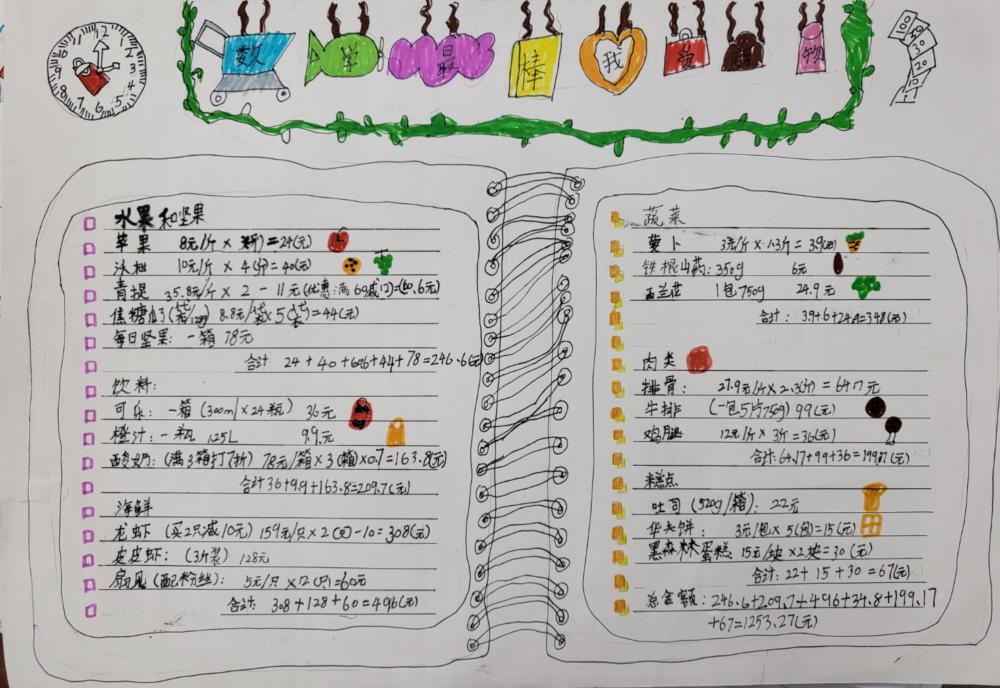 数学最棒我爱购物
12 1 2 3 4 5 6 7 8 9 10 11
100 50 20 20 10 5 1
水果和坚果
苹果 8元/斤 × 3(斤)=24(元)
沃柑 10元/斤 × 4(斤)=40(元)
青提 35.8元/斤 × 2 - 11元(优惠:满69减12)=(60.6元)
焦糖瓜子(袋/128g) 8.8元/袋×5(袋)=44(元)
每日坚果: 一箱 78元
合计 24+40+60.6+44+78=246.6(元)
饮料:
可乐: 一箱(300ml×24瓶) 36元
橙汁:一瓶 1.25L 9.9元
酸奶:(满3箱打7折) 78元/箱×3(箱)×0.7=163.8(元)
合计36+9.9+163.8=209.7(元)
海鲜
龙虾 (买2只减10元) 159元/只×2(只)-10=308(元)
皮皮虾: (3斤装) 128元
扇贝(配粉丝): 5元/只×12(只)=60元
合计: 308+128+60=496(元)
蔬菜
萝卜 3元/斤×1.3斤=3.9(元)
铁棍山药:350g 6元
西兰花 1包750g 24.9元
合计: 3.9+6+24.9=34.8(元)
肉类
排骨: 27.9元/斤×2.3(斤)=64.17元
牛排 (一包5片750g) 99(元)
鸡腿 12元/斤×3斤=36(元)
合计:64.17+99+36=199.17(元)
糕点
吐司(520g/箱): 22元
华夫饼: 3元/包×5(包)=15(元)
黑森林蛋糕:15元/块×2块=30(元)
合计:22+15+30=67(元)
总金额:246.6+209.7+496+34.8+199.17
+67=1253.27(元)